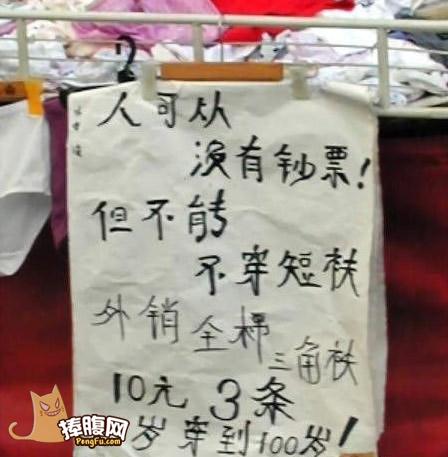 人可从
没有钞票!
但不能
不穿短衭
外销全棉
三角衭
10元3条
岁穿到100岁!
捧腹网
PengFu.com